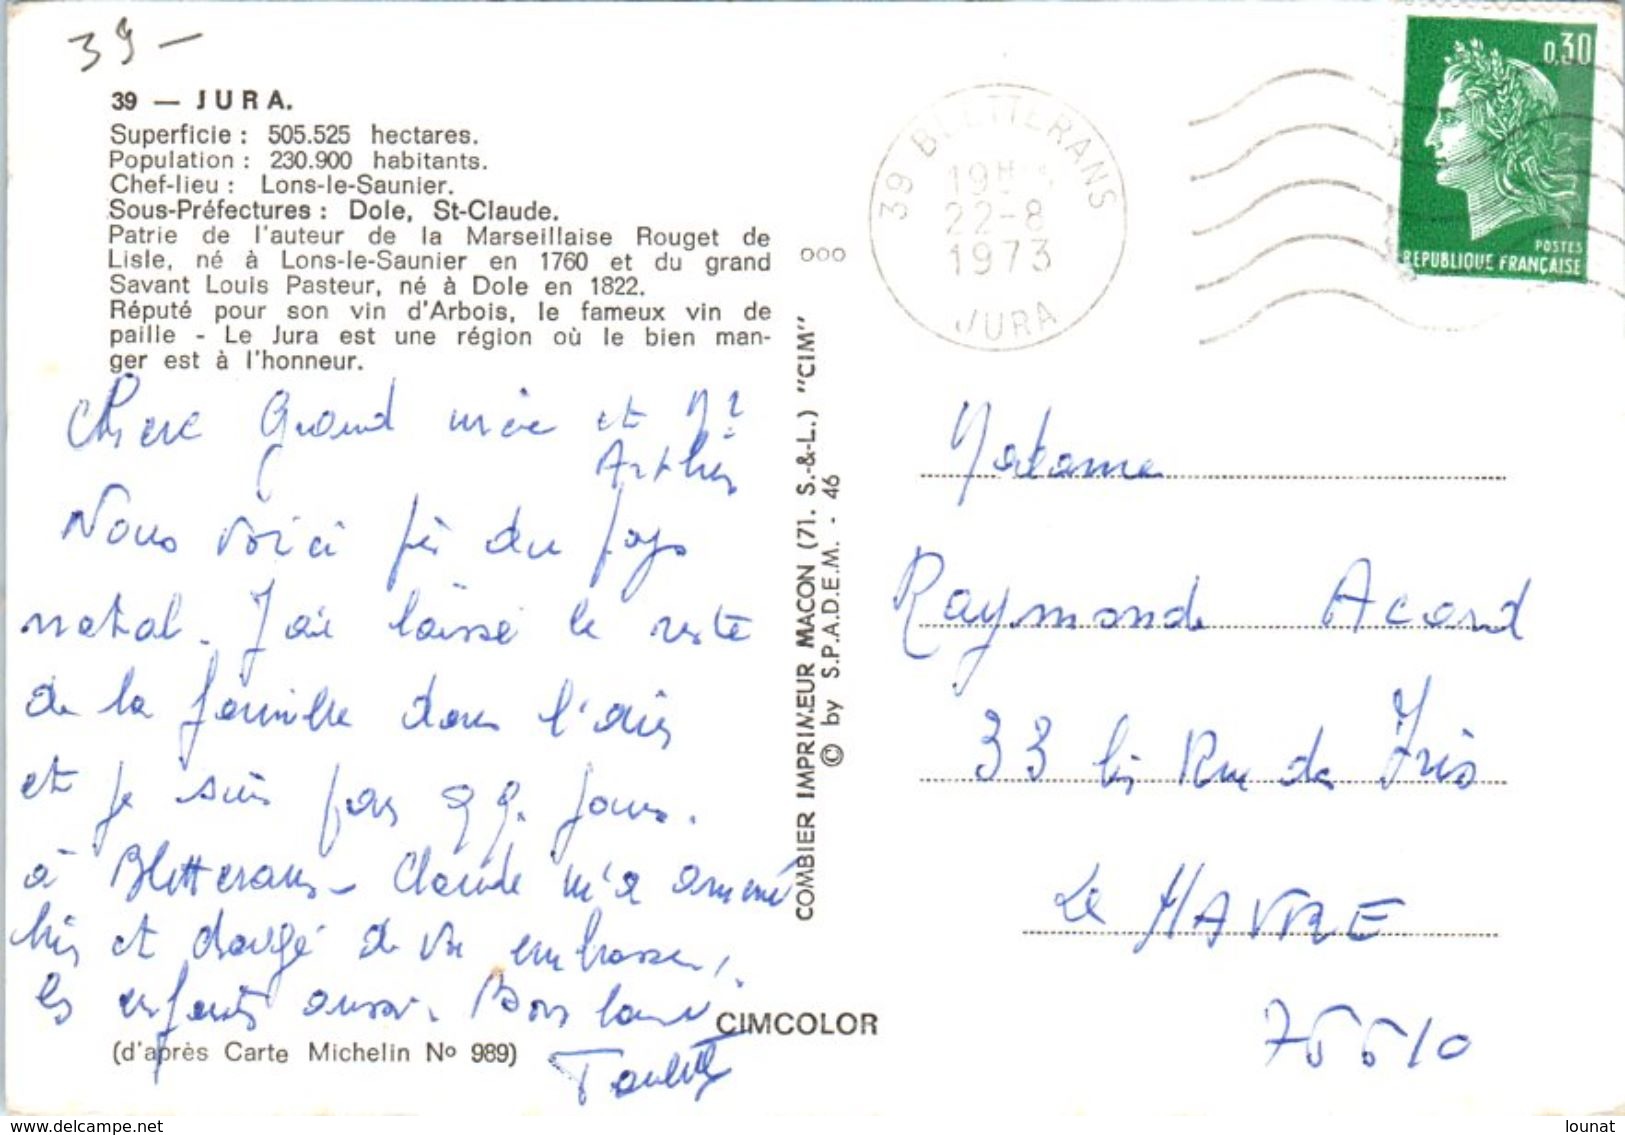 39 —
39 — JURA.
Superficie : 505.525 hectares.
Population : 230.900 habitants.
Chef-lieu : Lons-le-Saunier.
Sous-Préfectures : Dole, St-Claude.
Patrie de l'auteur de la Marseillaise Rouget de
Lisle, né à Lons-le-Saunier en 1760 et du grand
Savant Louis Pasteur, né à Dole en 1822.
Réputé pour son vin d'Arbois, le fameux vin de
paille - Le Jura est une région où le bien man-
ger est à l'honneur.
Chere Grand mère et Mr
Arthur
Nous voici près du pays
natal. J'ai laissé le reste
de la famille dans l'air
et je suis pour qq. jours.
à Bletterans - Claude m'a amené
hier et chargé de vs embrasser,
les enfants aussi. Bons
(d'après Carte Michelin No 989)
CIMCOLOR
COMBIER IMPRIMEUR MACON (71. S.-&-L.) "CIM"
© by S.P.A.D.E.M. - 46
39 BLETTERANS
19H
22-8
1973
JURA
0,30
POSTES
REPUBLIQUE FRANÇAISE
Madame
Raymonde Acard
33 bis Rue des Iris
Le HAVRE
76610
lounat